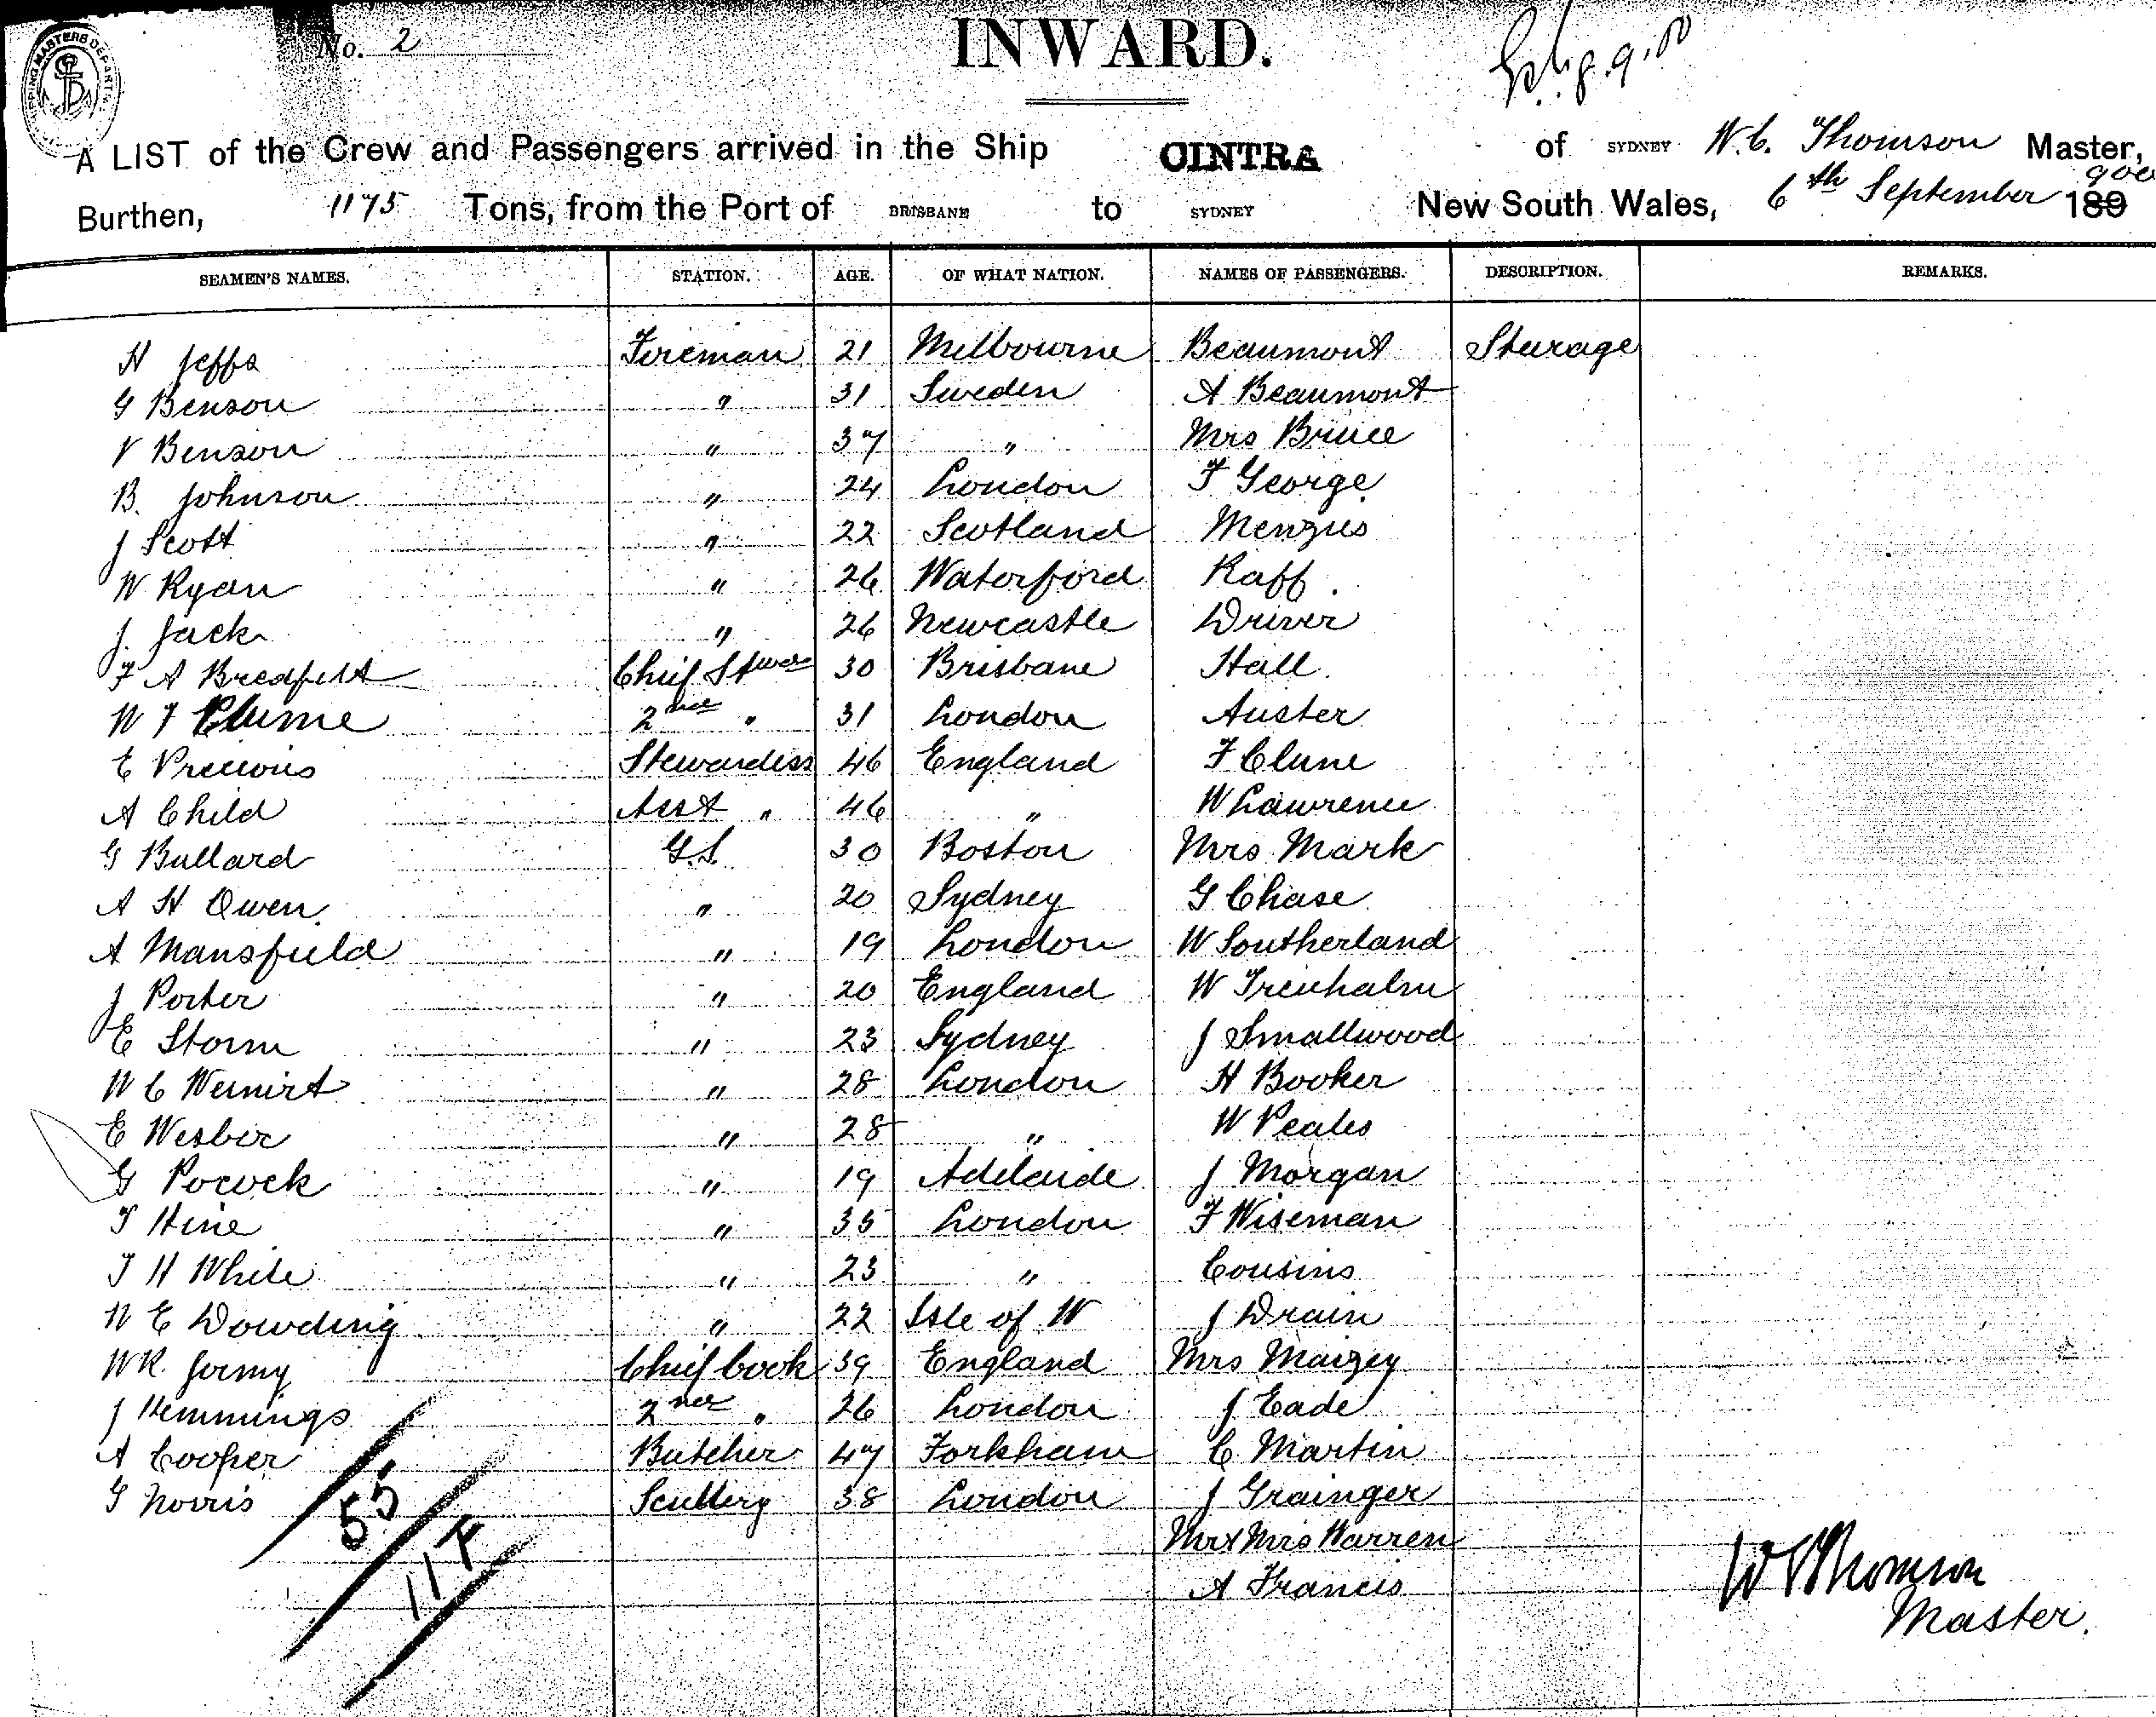 SHIPPING MASTERS DEPARTT.
No. 2
INWARD.
A LIST of the Crew and Passengers arrived in the Ship CINTRA of SYDNEY W. C. Thomson Master,
Burthen, 1175 Tons, from the Port of BRISBANE to SYDNEY New South Wales, 6th September 189 900
SEAMEN'S NAMES. STATION. AGE. OF WHAT NATION. NAMES OF PASSENGERS. DESCRIPTION. REMARKS.
H Jeffs Fireman 21 Melbourne Beaumont Steerage
G Benson " 31 Sweden A Beaumont
V Benson " 37 " Mrs Bruce
B. Johnson " 24 London F George
J Scott " 22 Scotland Menzies
W Ryan " 26 Waterford Raff.
J. Jack " 26 Newcastle Driver
F A Bredfeldt Chief Stwd 30 Brisbane Hall.
W F Plume 2nd " 31 London Auster
E Precious Stewardess 46 England F Clune
A Child Asst " 46 " W Lawrence
G Bullard G.S. 30 Boston Mrs Mark
A H Owen " 20 Sydney G Chase
A Mansfield " 19 London W Southerland
J Porter " 20 England W Trenhalm
E Storm " 23 Sydney J Smallwood
W C " 28 London H Booker
E Wesber " 28 " W Peales
G Pocock " 19 Adelaide J Morgan
T Hine " 35 London F Wiseman
T H White " 23 " Cousins
W E Dowding " 22 Isle of W J Drain
W R. Jermy Chief Cook 39 England Mrs Maizey
J Hemmings 2nd " 26 London J Eade
A Cooper Butcher 47 Forkham C Martin
G Norris Scullery 38 London J Grainger
Mr & Mrs Warren
A Francis
55
117
W C Thomson
Master.